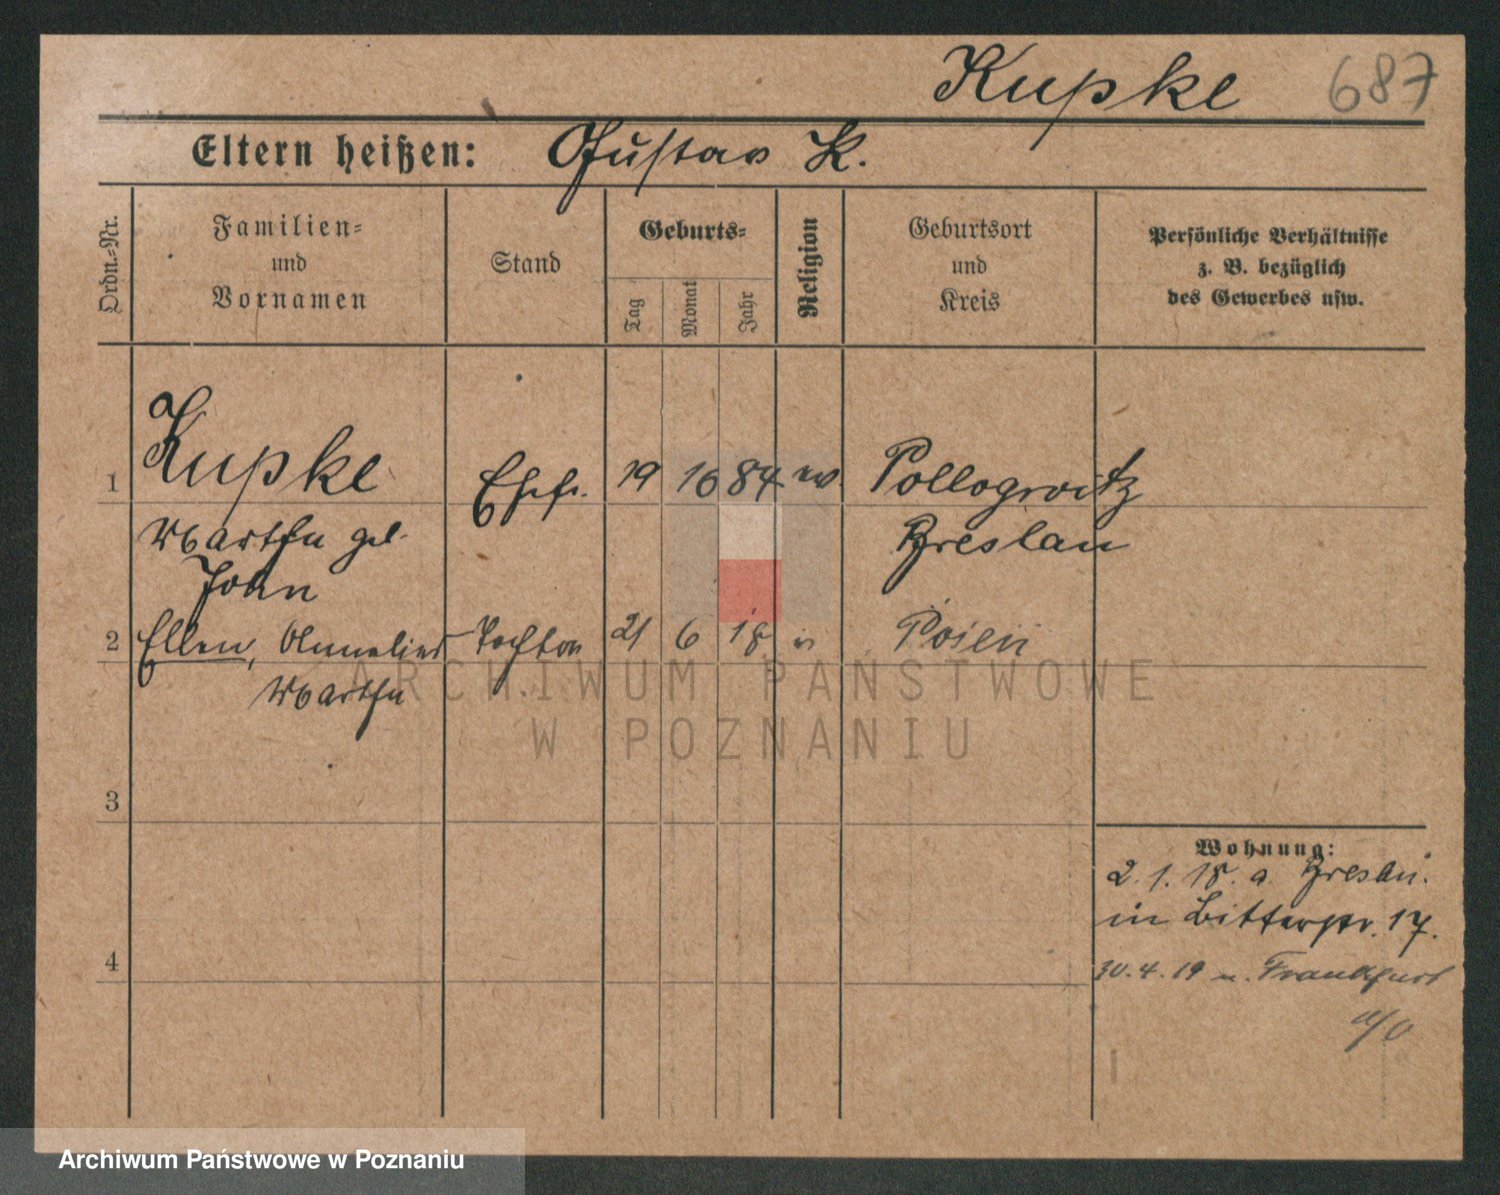 Kupke 687
Eltern heißen: Gustav K.
Ordn.-Nr.
Familien-
und
Vornamen
Stand
Geburts-
Tag
Monat
Jahr
Religion
Geburtsort
und
Kreis
Persönliche Verhältnisse
z. B. bezüglich
des Gewerbes usw.
1 Kupke Ehefr. 19 10 84 ev. Pollogwitz
Martha geb. Breslau
John
2 Ellen, Annelies Tochter 21 6 18 Posen
Martha
3
4
Wohnung:
2. 1. 18. a. Breslau.
in Bitterstr. 17.
30. 4. 19 n. Frankfurt
a/O
ARCHIWUM PAŃSTWOWE
W POZNANIU
Archiwum Państwowe w Poznaniu